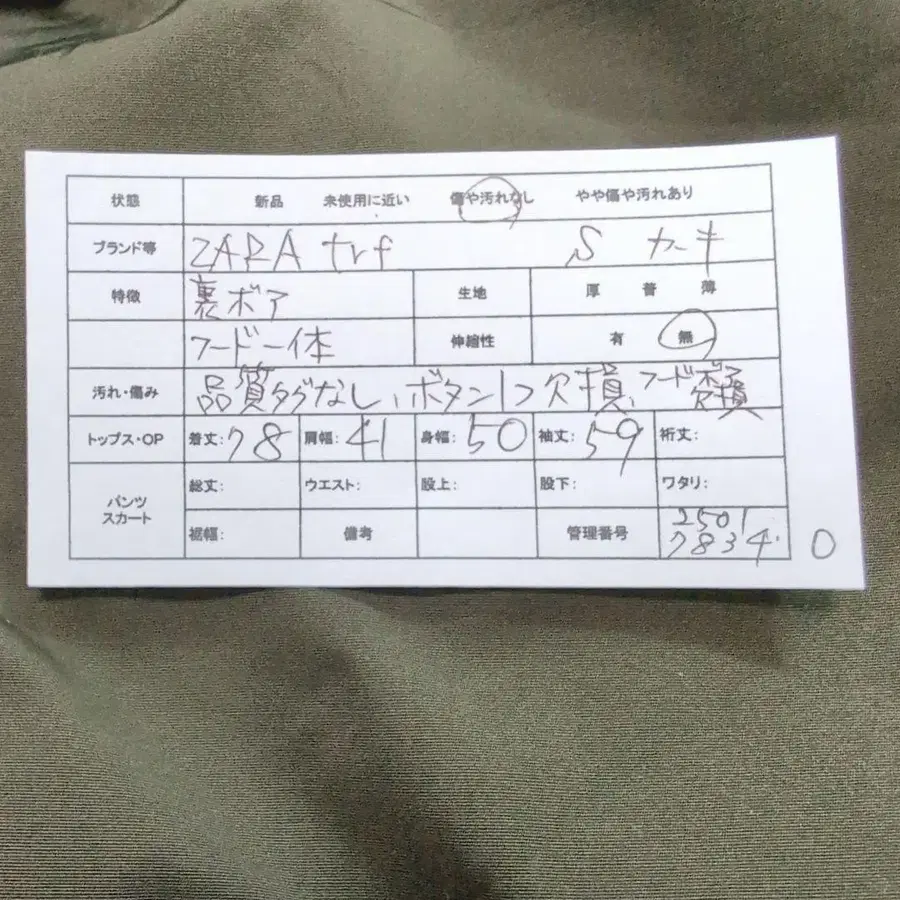 状態 新品 未使用に近い 傷や汚れなし やや傷や汚れあり
ブランド等 ZARA trf S カーキ
特徴 裏ボア 生地 厚 普 薄
フード一体 伸縮性 有 無
汚れ・傷み 品質タグなし、ボタン1つ欠損、フードボア欠損
トップス・OP 着丈:78 肩幅:41 身幅:50 袖丈:59 裄丈:
パンツ スカート 総丈: ウエスト: 股上: 股下: ワタリ:
裾幅: 備考 管理番号 2501
7834 0